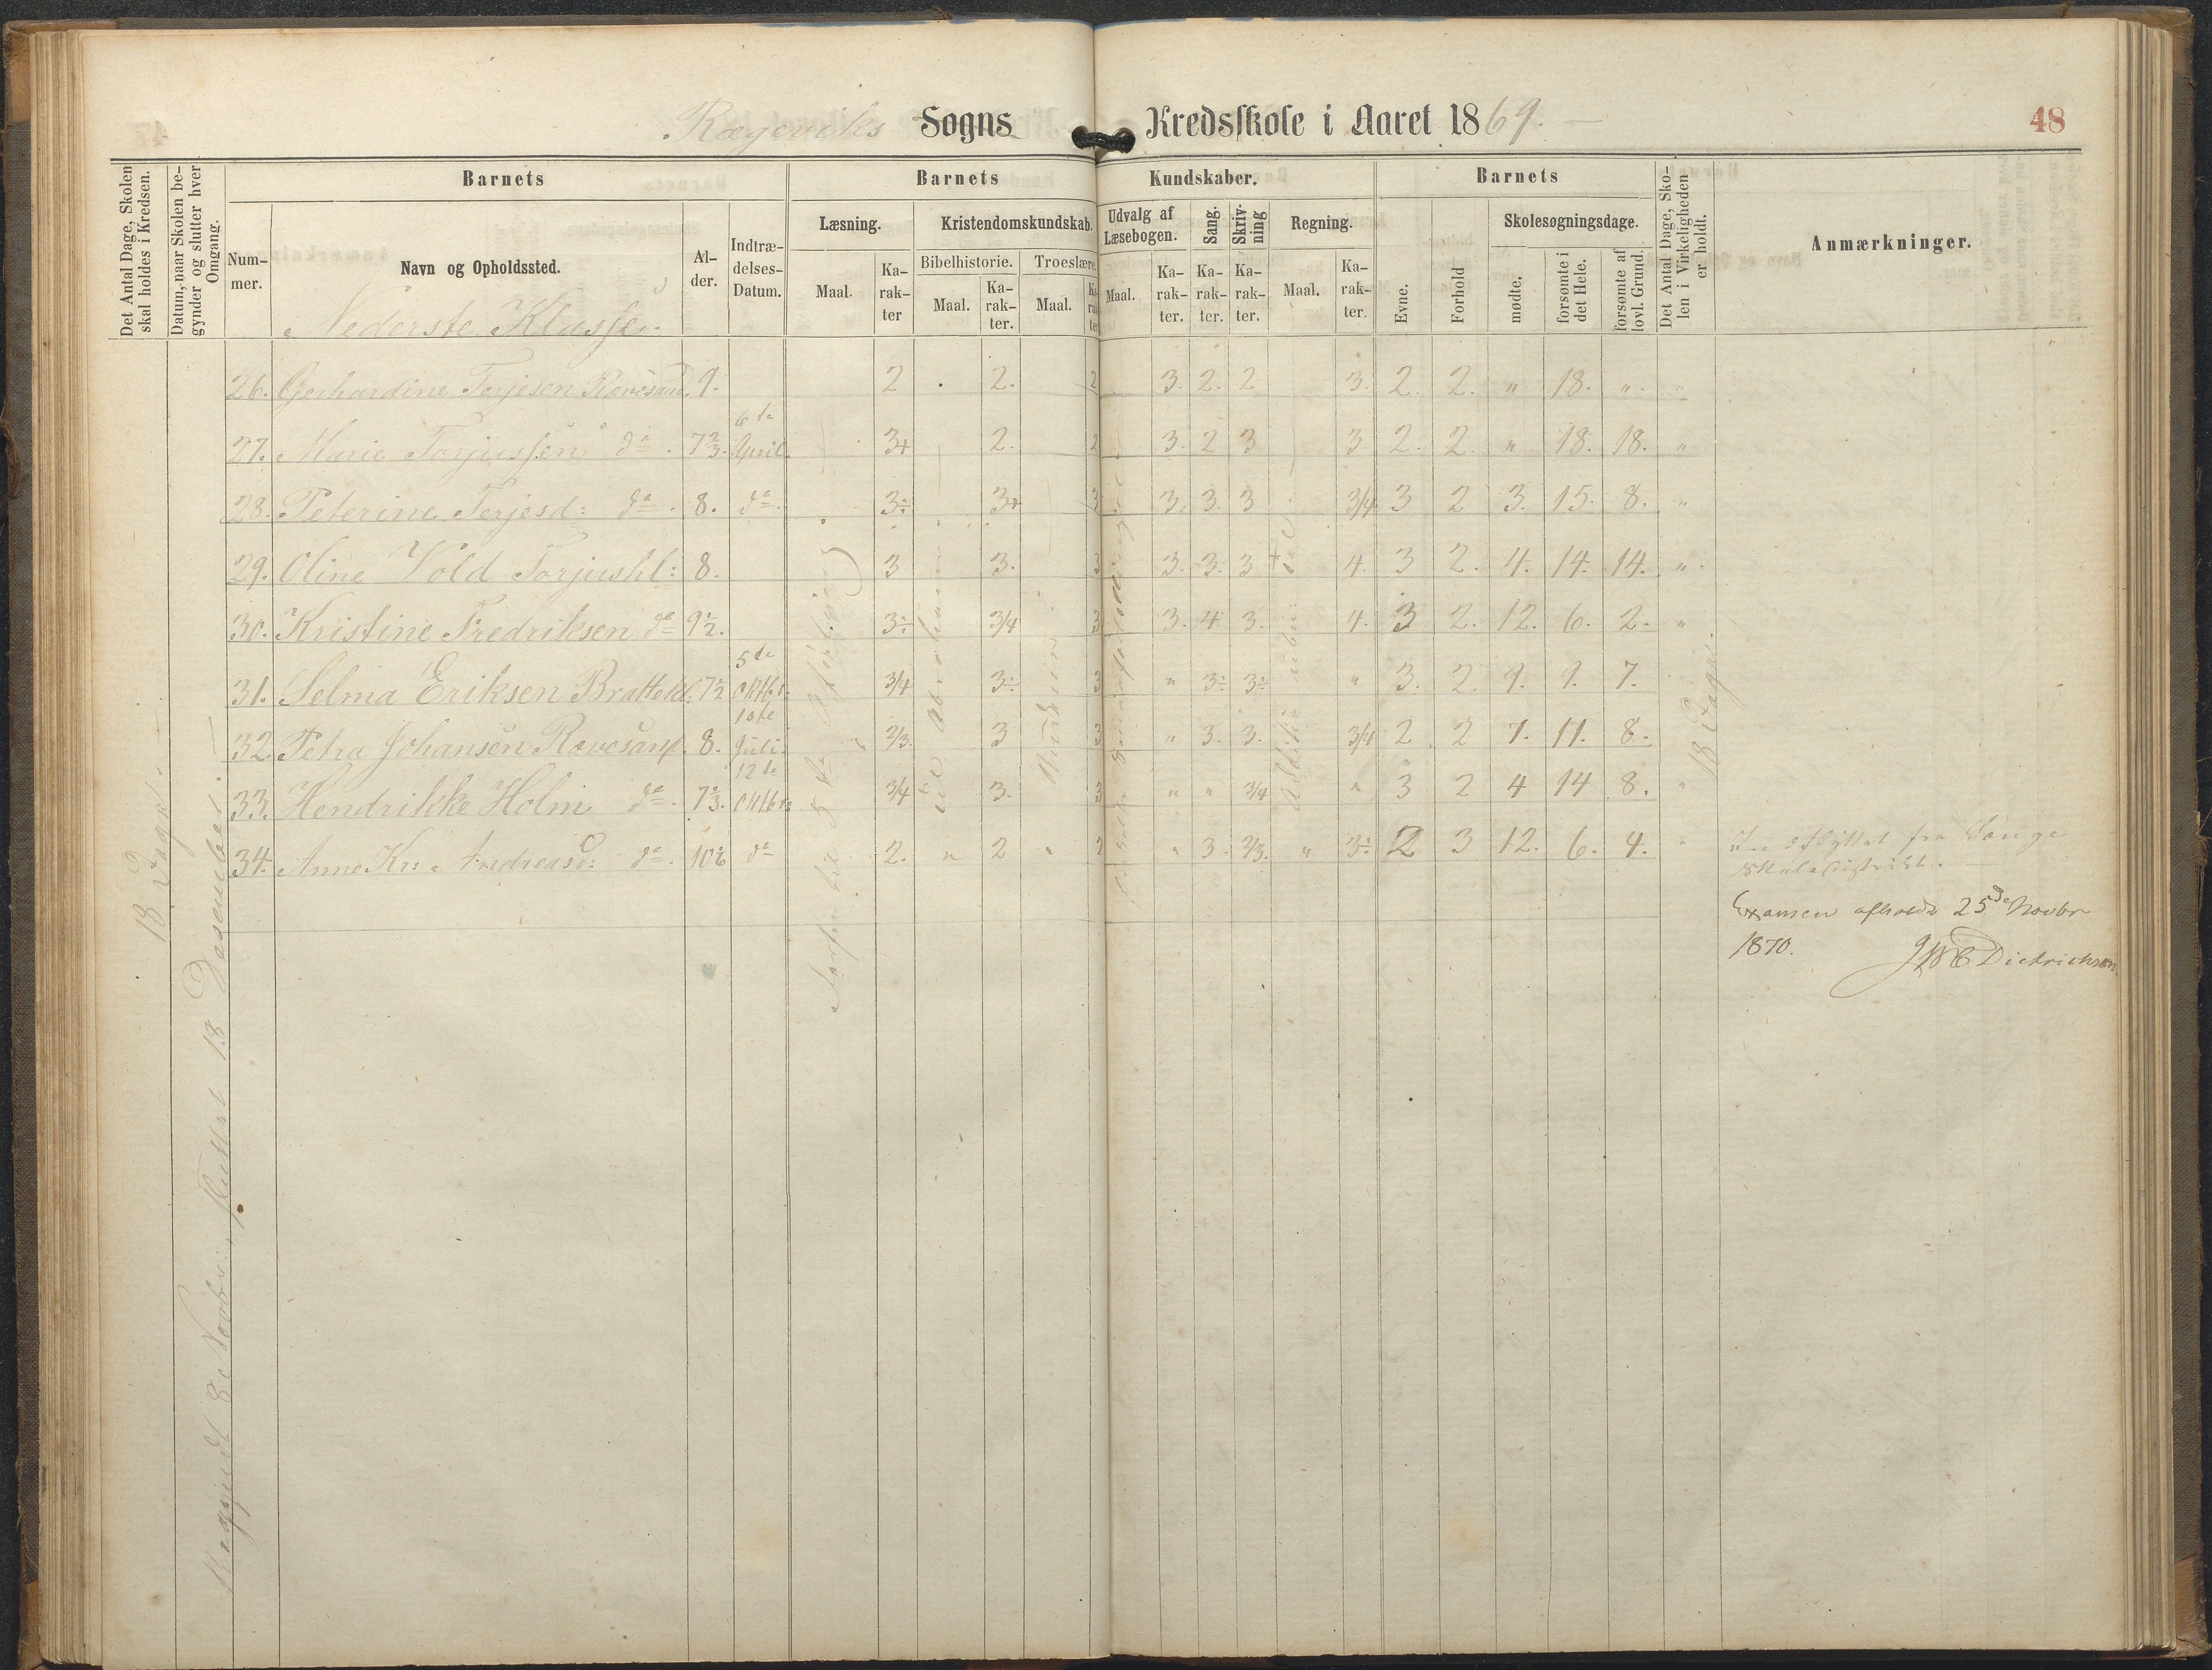 Sogns Kredsskole i Aaret 1869.
48
Det Antal Dage, Skolen skal holdes i Kredsen.
Datum, naar Skolen begynder og slutter hver Omgang.
Barnets
Barnets Kundskaber.
Barnets
Det Antal Dage, Skolen i Virkeligheden er holdt.
Anmærkninger.
Nummer.
Navn og Opholdssted.
Alder.
Indtrædelses-Datum.
Læsning.
Kristendomskundskab.
Udvalg af Læsebogen.
Sang.
Skrivning
Regning.
Skolesøgningsdage.
Bibelhistorie.
Troeslære.
Maal.
Karakter
Maal.
Karakter.
Maal.
Karakter
Maal.
Karakter.
Karakter.
Karakter.
Maal.
Karakter.
Evne.
Forhold
mødte.
forsømte i det Hele.
forsømte af lovl. Grund.
Nederste Klasse.
26. Gerhardine Terjesen Rævesand. 9. 2 2. 2 3. 2. 2 3. 2. 2. " 18. ". "
27. Marie Torjussen do. 7 2/3. 6te April. 3+ 2. 2 3. 2 3 3. 2. 2. " 18. 18. "
28. Peterine Terjesd: do. 8. do. 3÷ 3+ 3 3. 3. 3 3/4 3 2 3. 15. 8. "
29. Oline Vold Torjushl: 8. 3 3. 3 3. 3. 3 4. 3 2. 4. 14. 14. "
30. Kristine Fredriksen do 9 1/2. 3÷ 3/4 3 3. 4 3. 4. 3 2. 12. 6. 2. "
31. Selma Eriksen Brattekl. 7 1/2 5te Oktbr: 3/4 3÷ 3 " 3÷ 3÷ " 3. 2. 9. 9. 7.
32. Petra Johansen Rævesand. 8. 10de Juli. 2/3. 3 3 " 3. 3. 3/4 2 2 7. 11. 8.
33. Hendrikke Holm do. 7 2/3. 12te Oktbr: 3/4 3. 3 " " 3/4 " 3 2 4 14 8. "
34. Anne Kr: Andreasd: do. 10 1/2 do 2. " 2 " 2 " 3. 2/3. " 3÷ 2 3 12. 6. 4. "
18 Dage.
18 Dage.
Examen afholdt 25de Novbr
1870. Dietrichson.